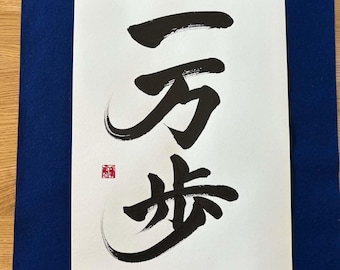 一万歩